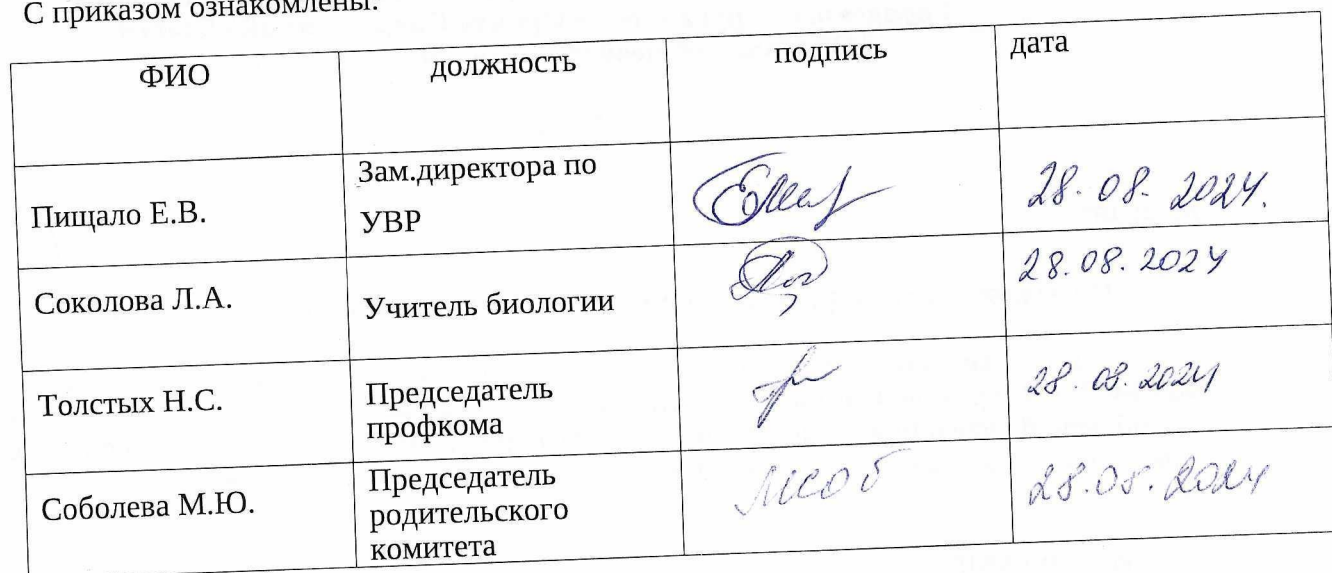 С приказом ознакомлены:
ФИО должность подпись дата
Зам.директора по
Пищало Е.В. УВР 28.08.2024.
Соколова Л.А. Учитель биологии 28.08.2024
Толстых Н.С. Председатель
профкома 28.08.2024
Соболева М.Ю. Председатель
родительского
комитета 28.08.2024